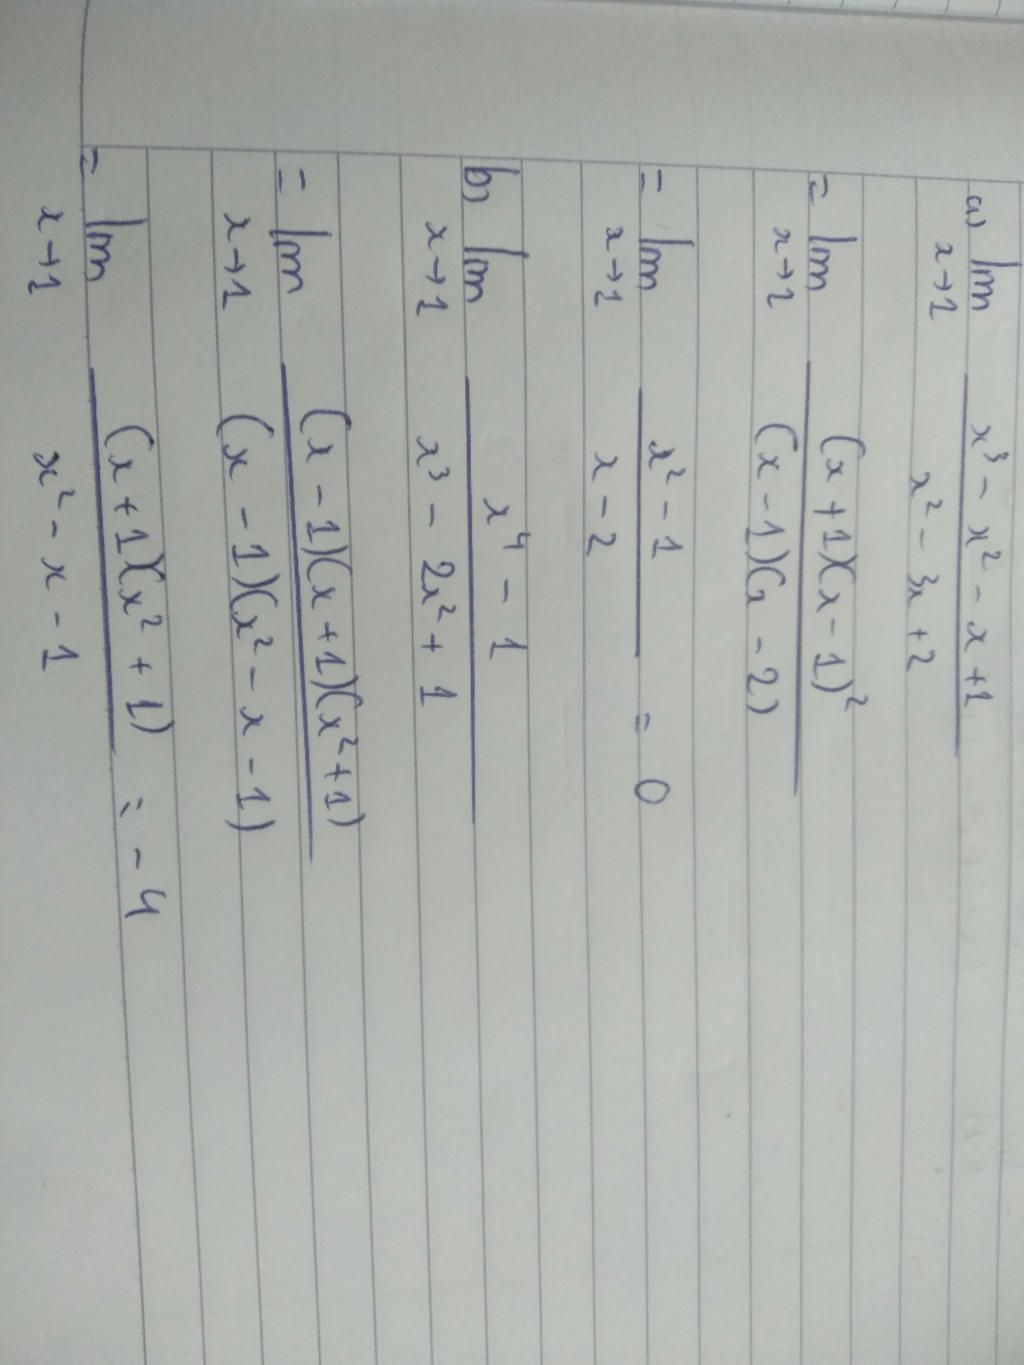 a) lim x³ - x² - x + 1
x→1 x² - 3x + 2
= lim (x + 1)(x - 1)²
x→1 (x - 1)(x - 2)
= lim x² - 1 = 0
x→1 x - 2
b) lim x⁴ - 1
x→1 x³ - 2x² + 1
= lim (x - 1)(x + 1)(x² + 1)
x→1 (x - 1)(x² - x - 1)
= lim (x + 1)(x² + 1) = - 4
x→1 x² - x - 1